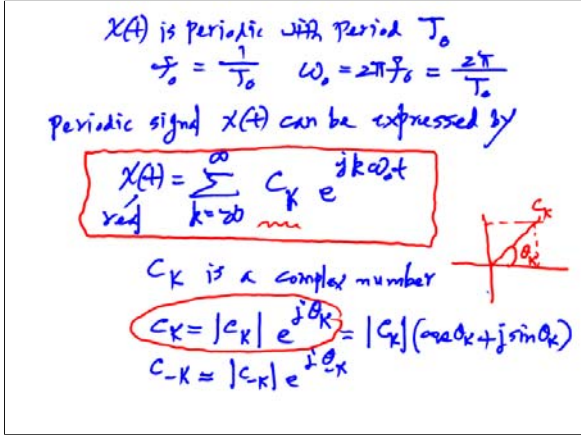 x(t) is periodic with period T₀
f₀ = 1/T₀ ω₀ = 2πf₀ = 2π/T₀
periodic signal x(t) can be expressed by
x(t) = ∑_{k=-∞}^{∞} C_k e^{jkω₀t}
real
C_k
θ_k
C_k is a complex number
C_k = |C_k| e^{jθ_k} = |C_k| (cos θ_k + j sin θ_k)
C_{-k} = |C_{-k}| e^{jθ_{-k}}